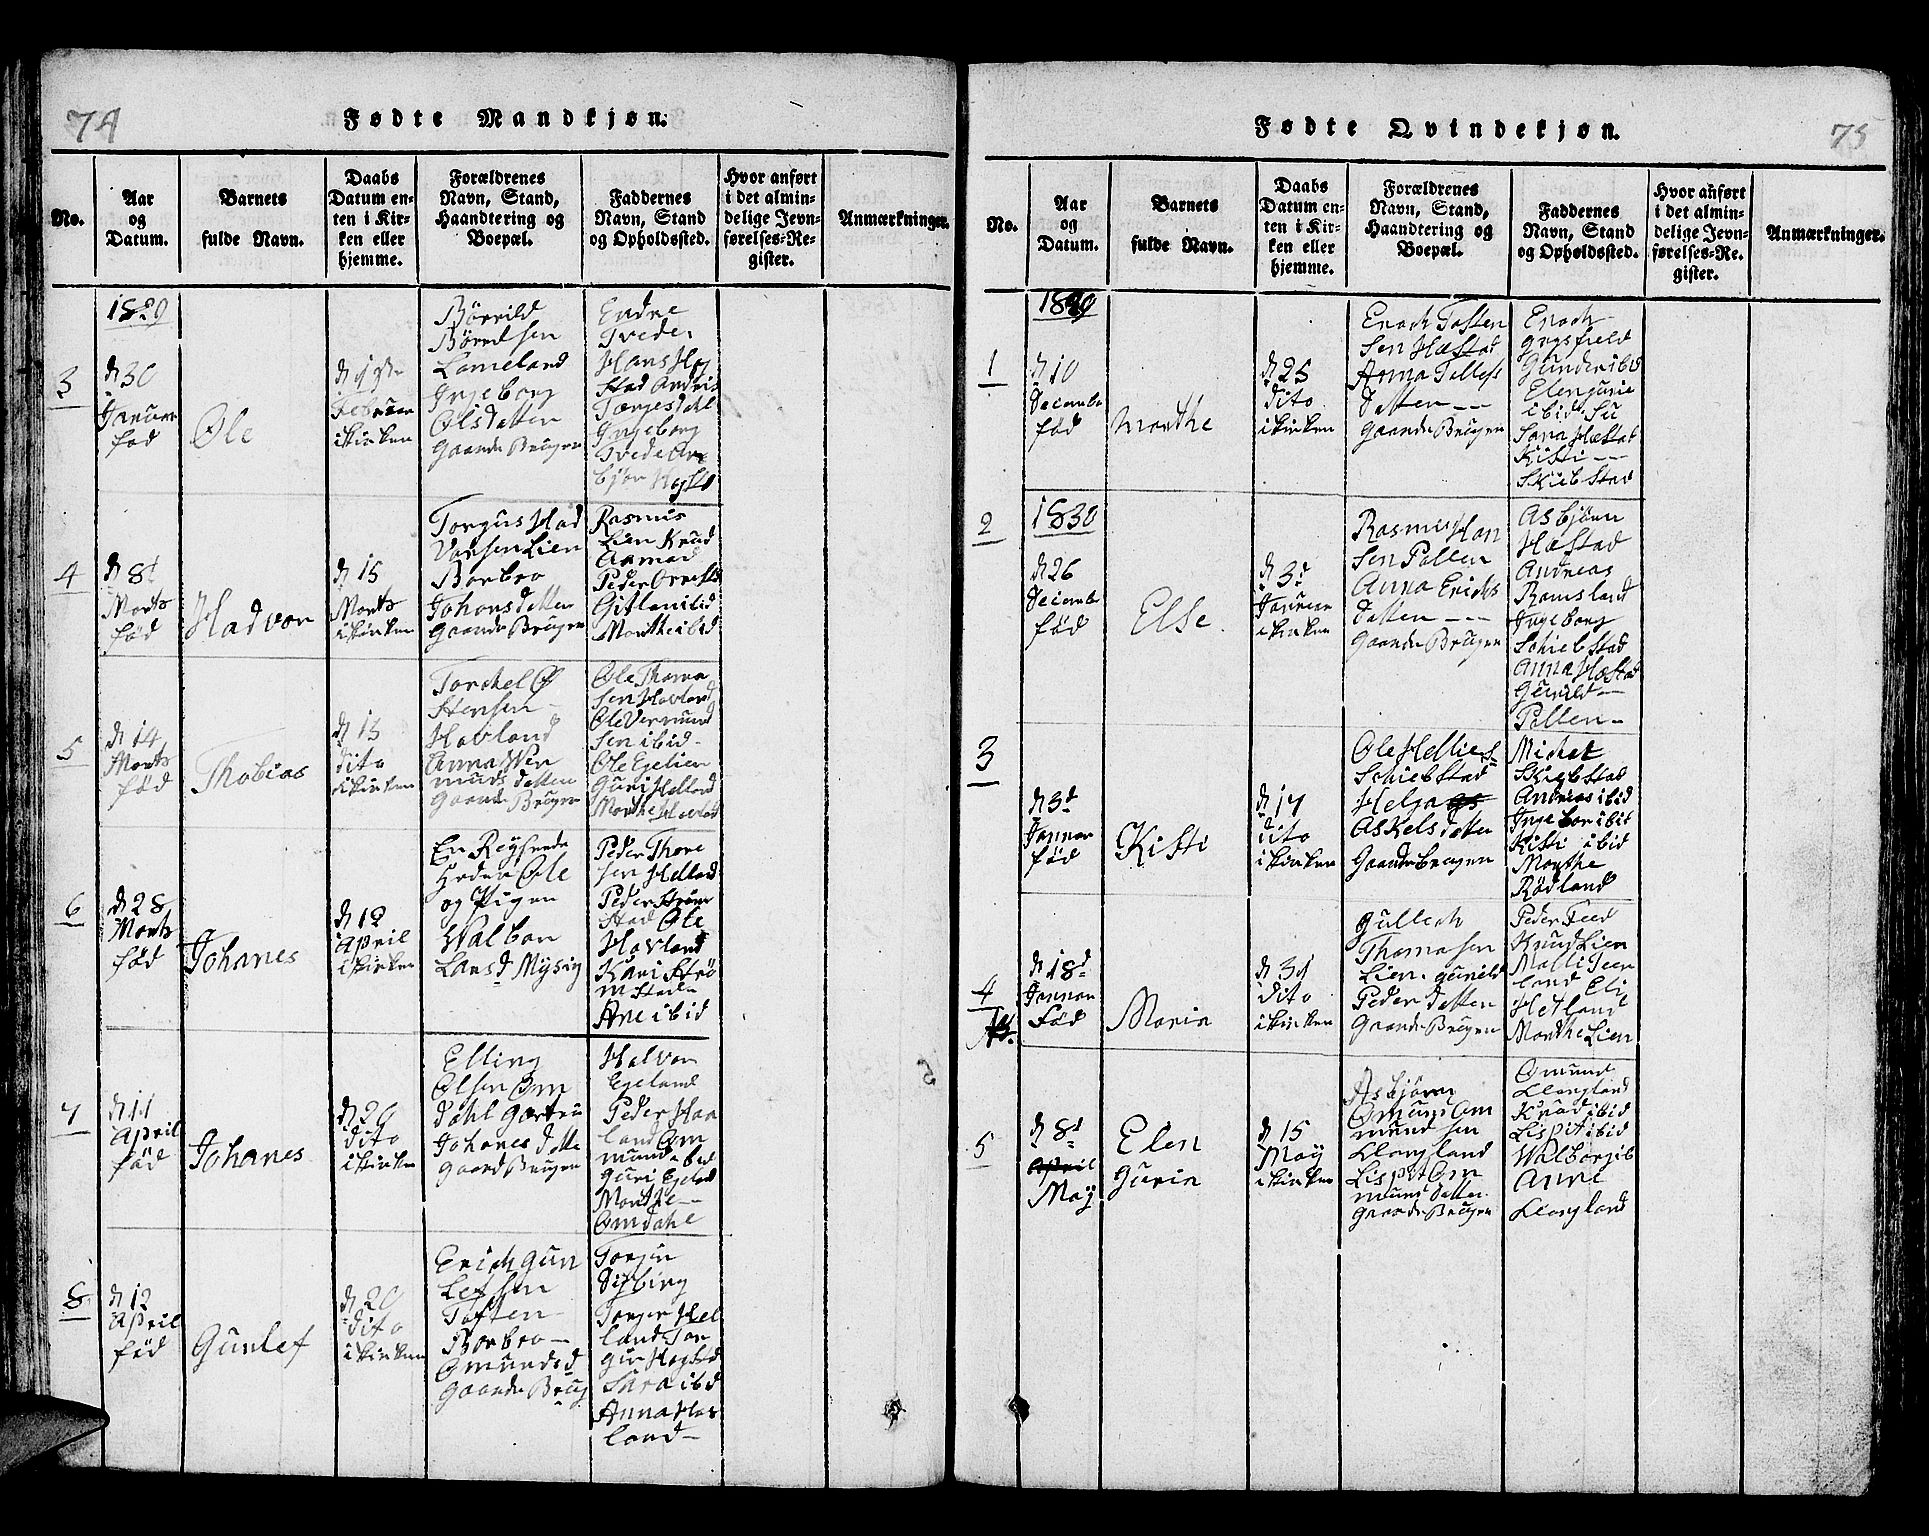 74
Fødte Mandkjøn.
No.
Aar
og
Datum.
Barnets
fulde Navn.
Daabs
Datum en-
ten i Kir-
ken eller
hjemme.
Forældrenes
Navn, Stand,
Haandtering og
Boepæl.
Faddernes
Navn, Stand
og Opholdssted.
Hvor anført
i det almin-
delige Jevn-
førelses-Re-
gister.
Anmærkninger.
1829
3
d 30
Januar
fød
Ole
Februar
i kirken
Børrild
Børrilsen
Lomeland
Ingeborg
Olsdatter
Gaardes Bruger
Endre
Tveder
Hans Høg
stad Andris
Torjesdahl
Ingeborg
Tvede An
bjør Høgst
4
d 8d
Morts
fød
Hadvor
d 15
Morts
i kirken
Torgus Had
Vorsen Lien
Borbro
Johansdatter
Gaarde Bruger
Rasmus
Lien Knud
Aamod
Peder Orrestd
Gitlan ibid
Morthe ibid
5
d 14
Morts
fød
Thobias
d 15
dito
i kirken
Torchel Ø
stensen
Hovland
Anna Ver
munds datter
Gaarde Bruger
Ole Thoma
sen Hovland
Ole Vermund
sen ibid
Ole Egelien
Guri Helland
Morthe Hovland
6
d 28
Morts
fød
Johanes
d 12
April
i kirken
En Reysende
Ole
og Pigen
Walbor
Larsd Mysing
Peder Thore
sen Helland
Peder Strøm
stad Ole
Hovland
Kari Strø
mstad
Ane ibid
7
d 11
April
fød
Johanes
d 20
dito
i kirken
Elling
Olsen Om
dahl Gortru
Johanes datte
Gaard Bruger
Halvor
Egeland
Peder Haa
land Om
mund ibid
Guri Egeland
Morthe
Omdahl
8
d 12
April
fød
Gunlef
d 20
dito
i kirken
Erich Gun
lefsen
Toften
Borbro
Omundsd
Gaarde Brug
Torjer
Dybing
Torger Hel
land Tor
gur Høgstad
Sara ibid
Anna Hov
land
75
Fødte Qvindekjøn.
No.
Aar
og
Datum.
Barnets
fulde Navn.
Daabs
Datum en-
ten i Kir-
ken eller
hjemme.
Forældrenes
Navn, Stand,
Haandtering og
Boepæl.
Faddernes
Navn, Stand
og Opholdssted.
Hvor anført
i det almin-
delige Jevn-
førelses-Re-
gister.
Anmærkninger.
1829
1
d 10
Decemb
fød
Morthe
d 25
dito
i kirken
Enoch Tosten
sen Hæstad
Anna Tollefs
datter
Gaarde Bruger
Enoch
Gysfield
Gunder ibid
Elengurie
ibid Su
Sara Hæstad
Kisti
Skiebstad
2
1830
d 26
Decemb
fød
Else
d 3d
Januar
i kirken
Rasmus Han
sen Pollen
Anna Erichs
datter
Gaarde Bruger
Asbjørn
Hæstad
Andreas
Romsland
Ingeborg
Schiebstad
Anna Hæstad
Gunild
Pollen
3
d 3d
Januar
fød
Kisti
d 17
dito
i kirken
Ole Hellies
Schiebstad
Helja
Askels datter
Gaarde bruger
Michel
Skiebstad
Andreas ibid
Ingebor ibit
Kisti ibid
Morthe
Rødland
4
d 18d
Januar
Fød
Maria
d 31
dito
i kirken
Gullech
Thomasen
Lien. Gunild
Peder datter
Gaarde Bruger
Peder Feed
Knud Lien
Malli Teen
land Eli
Hetland
Morthe Lien
5
d 8d
April
May
Elen
Gurin
d 15
May
i kirken
Asbjørn
Omund Om
mundsen
Llangland
Lispit Om
mund datter
Gaarde Bruger
Omund
Llangland
Knud ibid
Lispit ibid
Walborg ib
Anne
Llangland